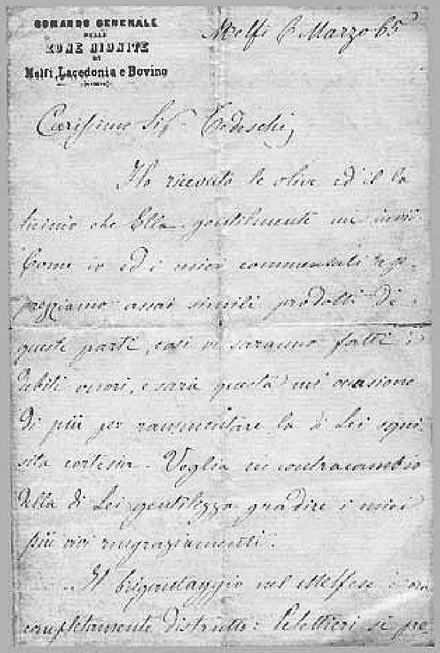 COMANDO GENERALE
DELLE
ZONE RIUNITE
DI
Melfi, Lacedonia e Bovino
Melfi 6 Marzo 65
Carissimo Sigr Tedeschi,
Ho ricevuto le olive ed il la
ticinio che Ella gentilmente mi inviò.
Come io ed i miei commensali ap-
prezziamo assai simili prodotti di
queste parti, così vi saranno fatti i
debiti onori, e sarà questa un' occasione
di più per rammentare la di Lei squi-
sita cortesia. Voglia in contracambio
della di Lei gentilezza gradire i miei
più vivi ringraziamenti.
Il brigantaggio nel Melfese è ora
completamente distrutto: Volonnieri si pe